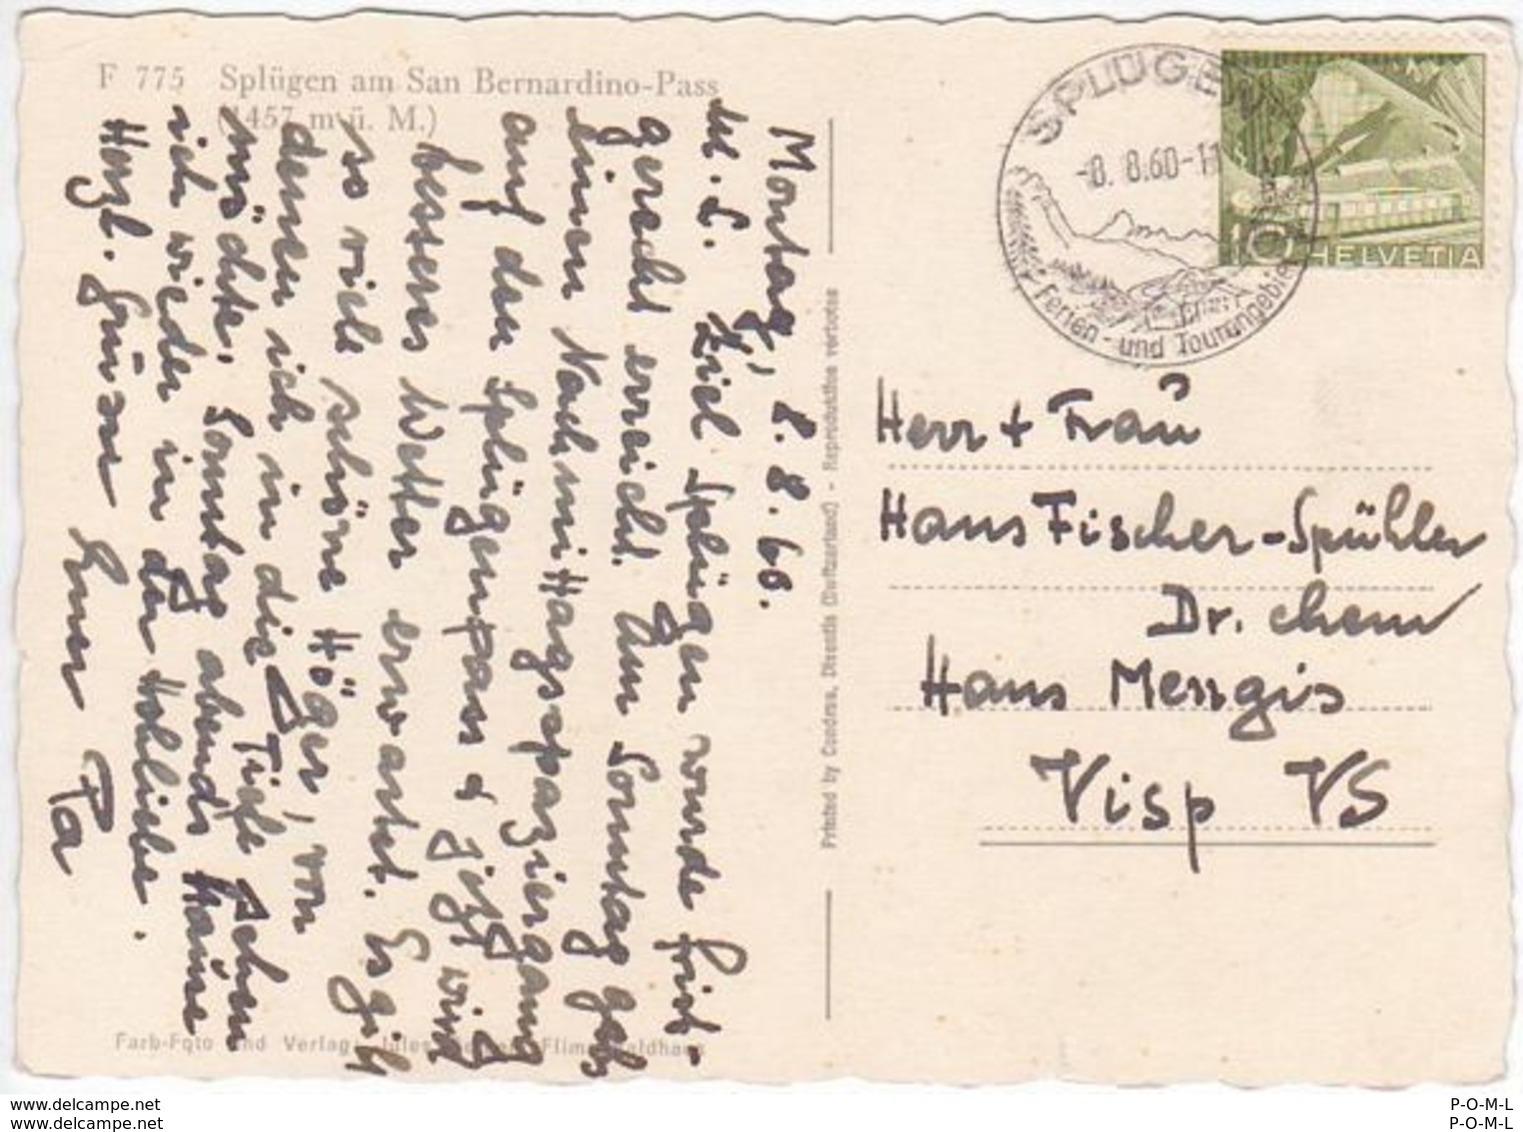 F 775 Splügen am San Bernardino-Pass
(1457 m ü. M.)
Montag, 8. 8. 60.
M. L. Ziel Splügen wurde frist-
gerecht erreicht. Am Sonntag gab's
einen Nachmittagsspaziergang
auf den Splügenpass &
besseres Wetter erwartet. Es gibt
so viele schöne Höger, von
denen ich in die Tiefe sehen
möchte. Sonntag abends
ich wieder in der Hohliebe.
Herzl. Grüsse Euer Pa
Printed by Condrau, Disentis (Switzerland) - Reproduction verboten
Farb-Foto und Verlag: Jules
SPLÜGEN
-8. 8.60-11
Ferien- und Tourengebiet
10 HELVETIA
Herr + Frau
Hans Fischer-Spühler
Dr. chem
Hans Mengis
Visp VS
www.delcampe.net
www.delcampe.net
P-O-M-L
P-O-M-L